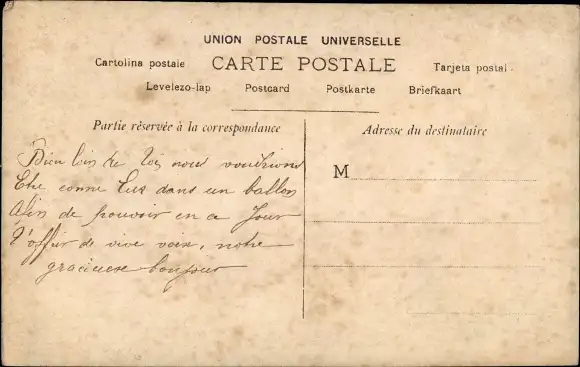 UNION POSTALE UNIVERSELLE
Cartolina postale CARTE POSTALE Tarjeta postal.
Levelezo-lap Postcard Postkarte Briefkaart
Partie réservée à la correspondance
Bien loin de Toi nous voudrions
Etre comme Eux dans un ballon
Afin de pouvoir en ce Jour
T'offrir de vive voix, notre
gracieuse bonjour
Adresse du destinataire
M